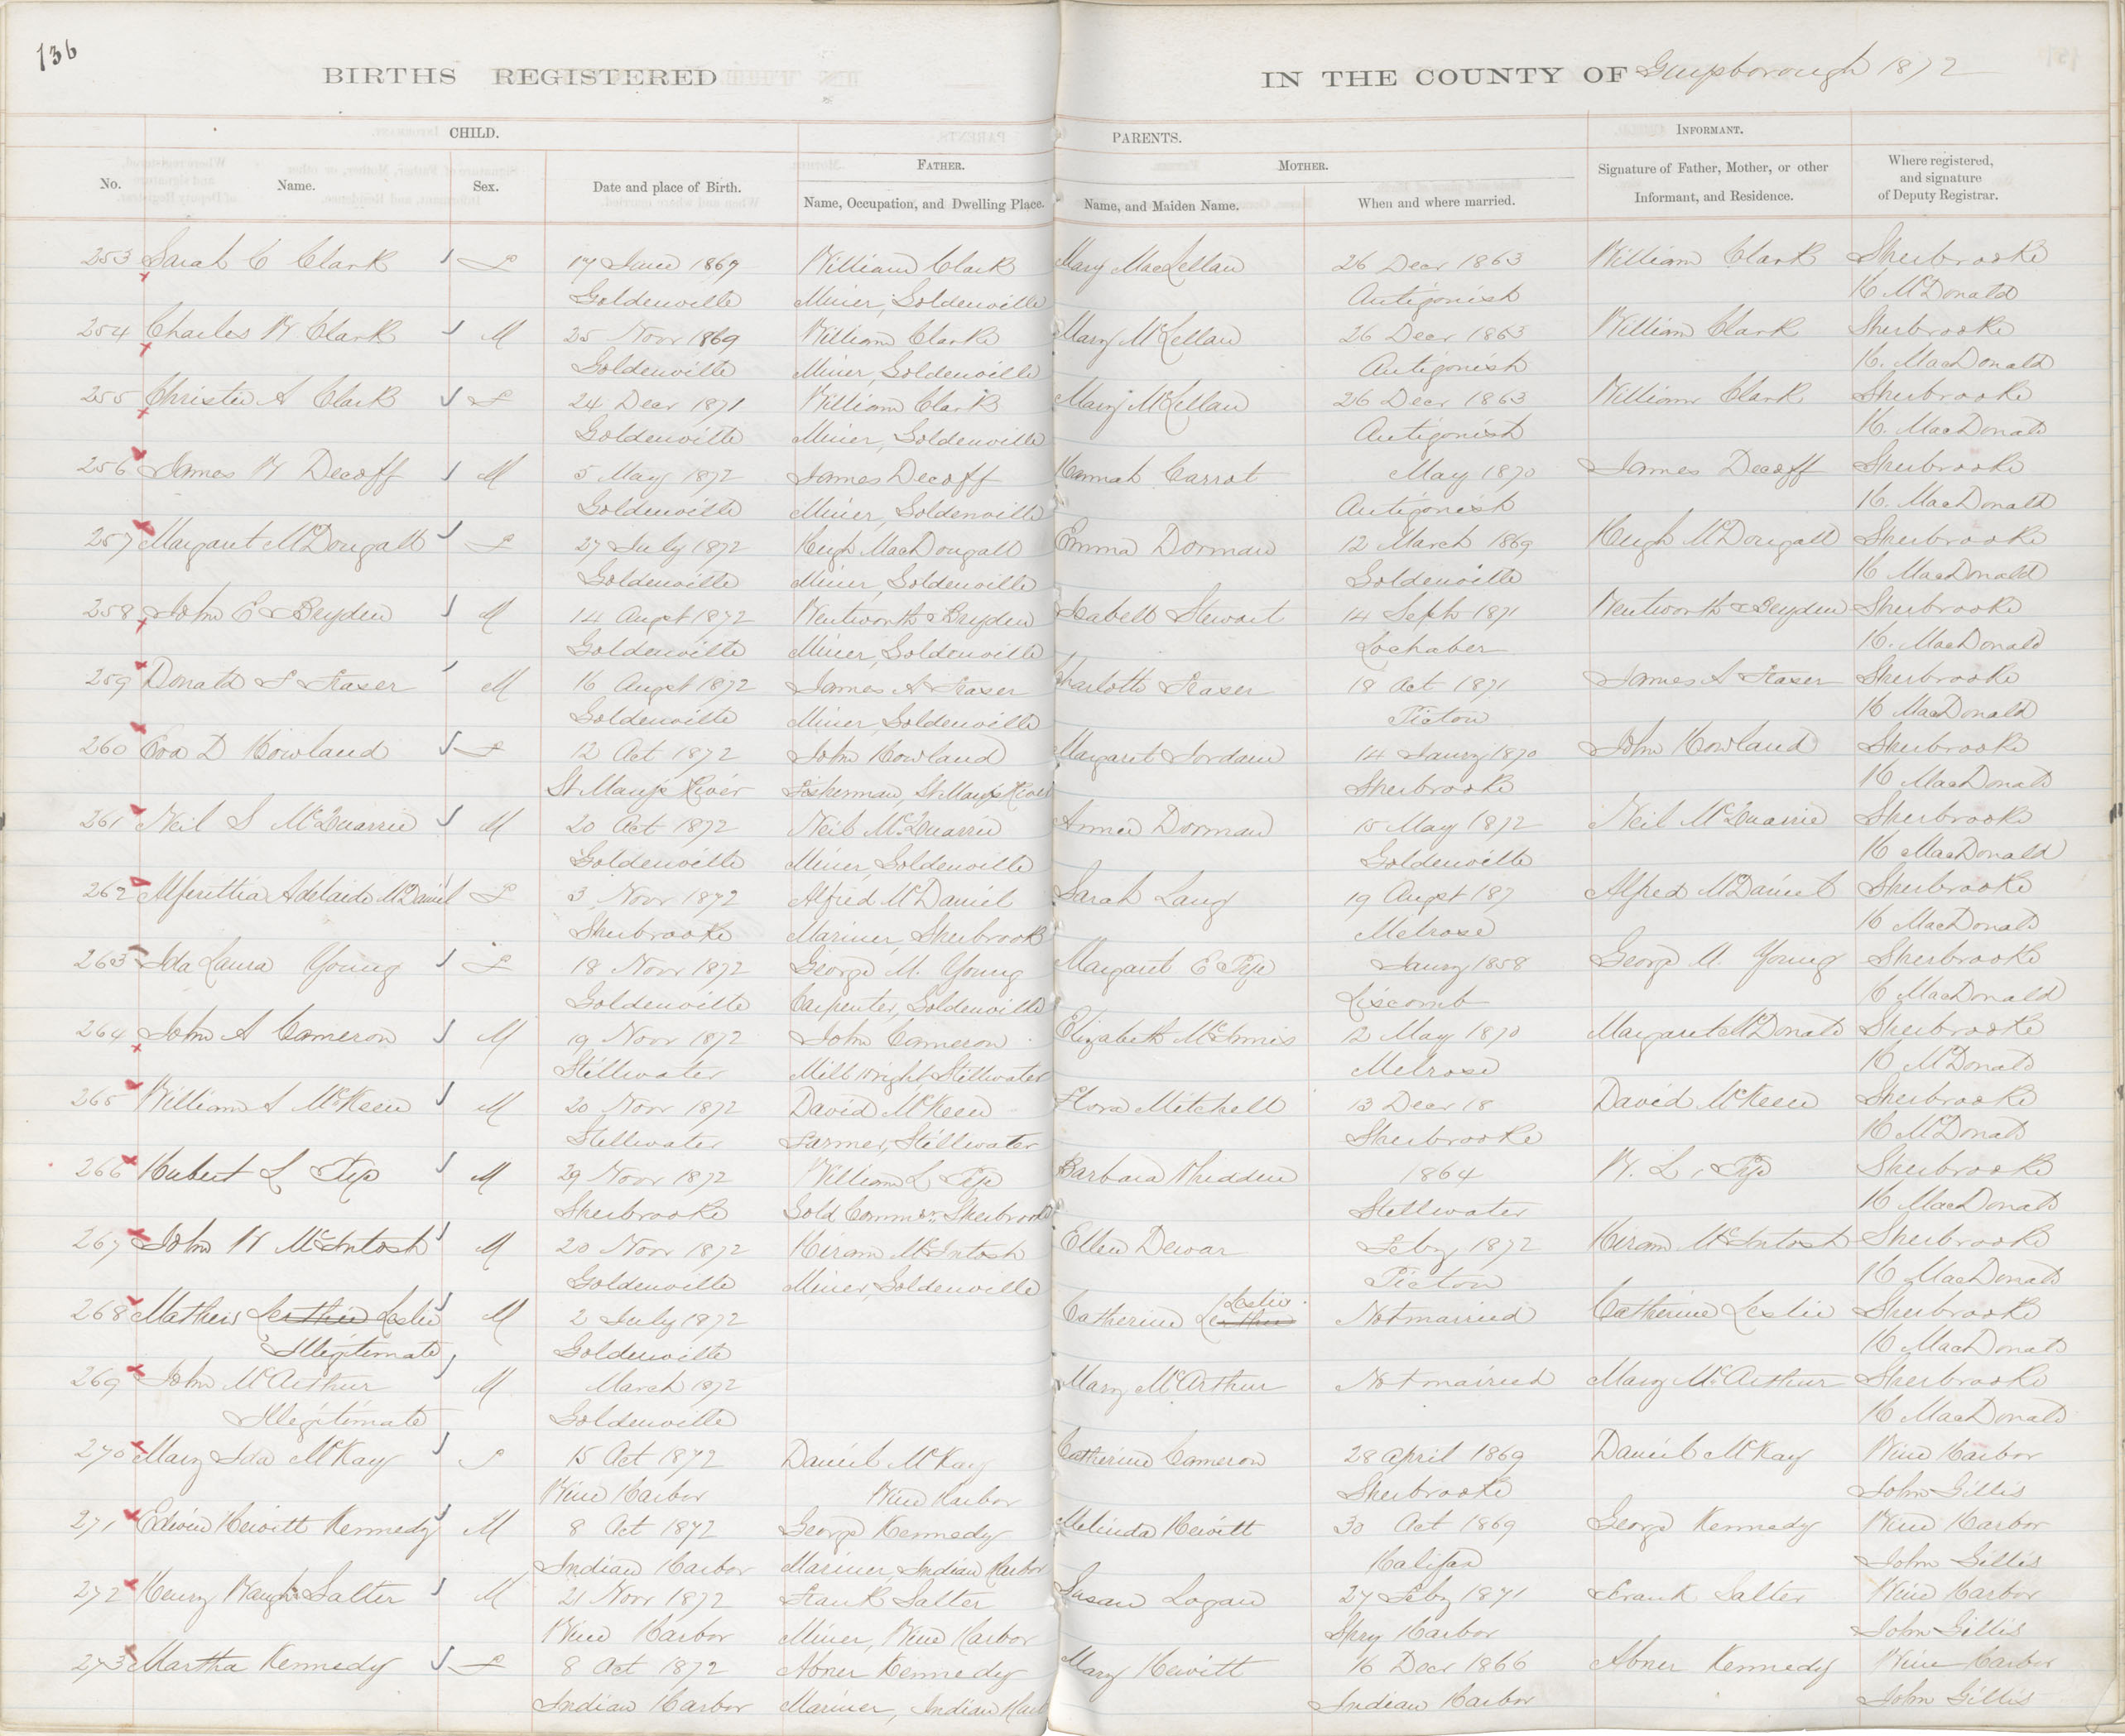 136
BIRTHS REGISTERED IN THE COUNTY OF Guysborough 1872
CHILD. PARENTS. INFORMANT.
FATHER. MOTHER.
No. Name. Sex. Date and place of Birth. Name, Occupation, and Dwelling Place. Name, and Maiden Name. When and where married. Signature of Father, Mother, or other Informant, and Residence. Where registered, and signature of Deputy Registrar.
253 Sarah C Clark F 17 June 1867 William Clark Mary MacLellan 26 Decr 1863 William Clark Sherbrooke
Goldenville Miner, Goldenville Antigonish H McDonald
254 Charles W Clark M 25 Novr 1869 William Clarke Mary McLellan 26 Decr 1863 William Clark Sherbrooke
Goldenville Miner, Goldenville Antigonish H. MacDonald
255 Christie A Clark F 24 Decr 1871 William Clark Mary McLellan 26 Decr 1863 William Clark Sherbrooke
Goldenville Miner, Goldenville Antigonish H. MacDonald
256 James W Decoff M 5 May 1872 James Decoff Hannah Carrot May 1870 James Decoff Sherbrooke
Goldenville Miner, Goldenville Antigonish H. MacDonald
257 Margaret McDougall F 27 July 1872 Hugh MacDougall Emma Dorman 12 March 1869 Hugh McDougall Sherbrooke
Goldenville Miner, Goldenville Goldenville H MacDonald
258 John E Bryden M 14 Augst 1872 Wentworth Bryden Isabell Stewart 14 Septr 1871 Wentworth Bryden Sherbrooke
Goldenville Miner, Goldenville Lochaber H. MacDonald
259 Donald F Fraser M 16 Augst 1872 James A Fraser Charlotte Fraser 18 Oct 1871 James A Fraser Sherbrooke
Goldenville Miner, Goldenville Pictou H MacDonald
260 Eva D Howland F 12 Oct 1872 John Howland Margaret Jordain 14 Jany 1870 John Howland Sherbrooke
St Mary's River Fisherman, St Mary's River Sherbrooke H MacDonald
261 Neil S McQuarrie M 20 Oct 1872 Neil McQuarrie Annie Dorman 15 May 1872 Neil McQuarrie Sherbrooke
Goldenville Miner, Goldenville Goldenville H MacDonald
262 Adelaide McDaniel F 3 Novr 1872 Alfred McDaniel Sarah Lang 19 Augst 187 Alfred McDaniel Sherbrooke
Sherbrooke Mariner, Sherbrook Melrose H MacDonald
263 Ida Laura Young F 18 Novr 1872 George M. Young Margaret E Pye Jany 1858 George M. Young Sherbrooke
Goldenville Carpenter, Goldenville Liscomb H MacDonald
264 John A Cameron M 19 Novr 1872 John Cameron Elizabeth McInnis 12 May 1870 Margaret McDonald Sherbrooke
Stillwater Millwright, Stillwater Melrose H McDonald
265 William A McKeen M 20 Novr 1872 David McKeen Flora Mitchell 13 Decr 18 David McKeen Sherbrooke
Stillwater Farmer, Stillwater Sherbrooke H McDonald
266 Hubert L Pye M 29 Novr 1872 William L Pye Barbara Whidden 1864 W. L. Pye Sherbrooke
Sherbrooke Gold Commsr, Sherbrooke Stillwater H MacDonald
267 John W McIntosh M 20 Novr 1872 Hiram McIntosh Ellen Dewar Feby 1872 Hiram McIntosh Sherbrooke
Goldenville Miner, Goldenville Pictou H MacDonald
268 Leslie M 2 July 1872 Catherine Leslie Not married Catherine Leslie Sherbrooke
Illegitimate Goldenville H MacDonald
269 John McArthur M March 1872 Mary McArthur Not married Mary McArthur Sherbrooke
Illegitimate Goldenville H MacDonald
270 Mary Ida McKay F 15 Oct 1872 Daniel McKay Catherine Cameron 28 April 1869 Daniel McKay Wine Harbor
Wine Harbor Wine Harbor Sherbrooke John Gillis
271 Edwin Hewitt Kennedy M 8 Oct 1872 George Kennedy Melinda Hewitt 30 Oct 1869 George Kennedy Wine Harbor
Indian Harbor Mariner, Indian Harbor Halifax John Gillis
272 Henry Waugh Salter M 21 Novr 1872 Frank Salter Susan Logan 27 Feby 1871 Frank Salter Wine Harbor
Wine Harbor Miner, Wine Harbor Spry Harbor John Gillis
273 Martha Kennedy F 8 Oct 1872 Abner Kennedy Mary Hewitt 16 Decr 1866 Abner Kennedy Wine Harbor
Indian Harbor Mariner, Indian Harb Indian Harbor John Gillis